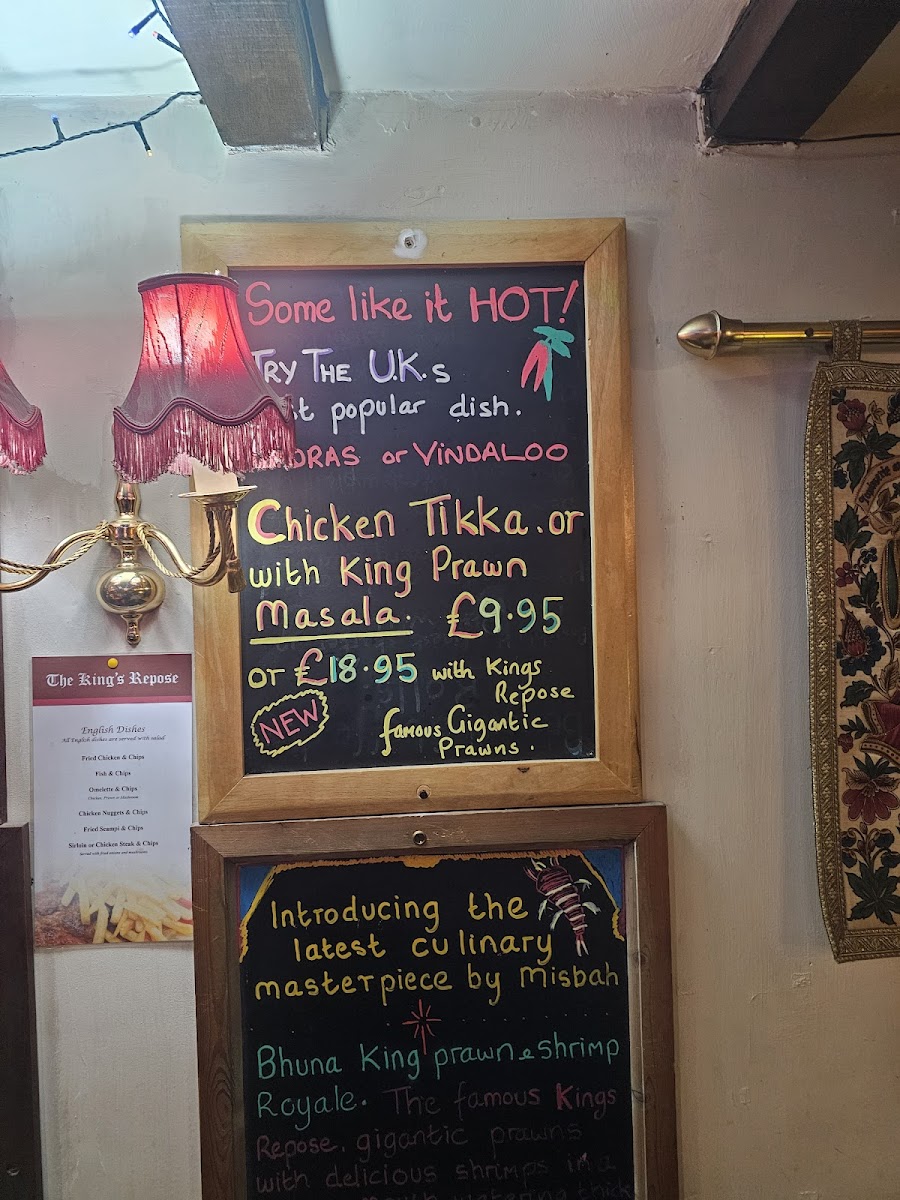 Some like it HOT!
TRY THE U.K.s
popular dish.
or VINDALOO
Chicken Tikka. or
with King Prawn
Masala. £9.95
or £18.95 with Kings
Repose
NEW
famous Gigantic
Prawns.
The King's Repose
English Dishes
All English dishes are served with salad
Fried Chicken & Chips
Fish & Chips
Omelette & Chips
Chicken, Prawn or Mushroom
Chicken Nuggets & Chips
Fried Scampi & Chips
Sirloin or Chicken Steak & Chips
Served with fried onions and mushrooms
Introducing the
latest culinary
masterpiece by Misbah
Bhuna King prawn & shrimp
Royale. The famous Kings
Repose. gigantic prawns
with delicious shrimps in a